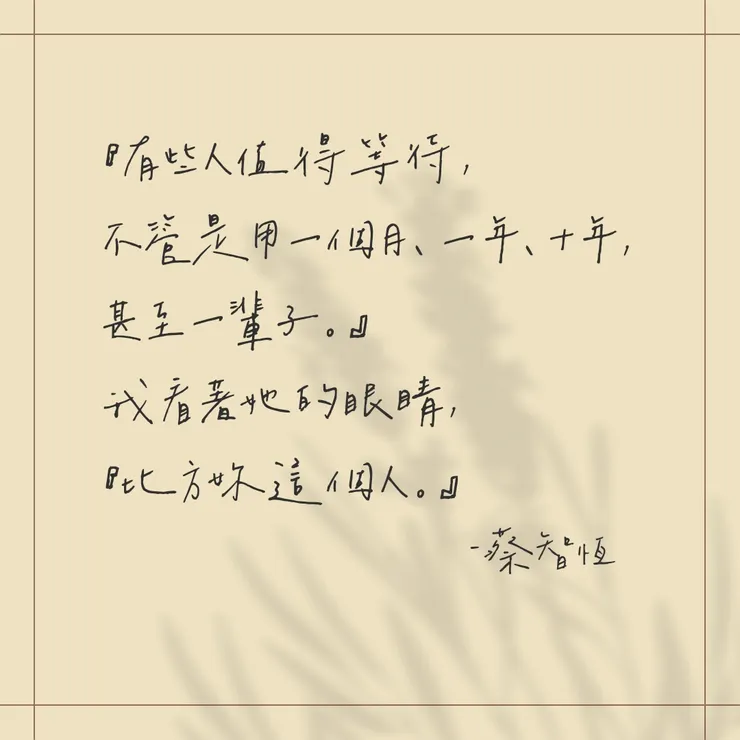 『有些人值得等待，
不管是用一個月、一年、十年，
甚至一輩子。』
我看著她的眼睛，
『比方妳這個人。』
-蔡智恒